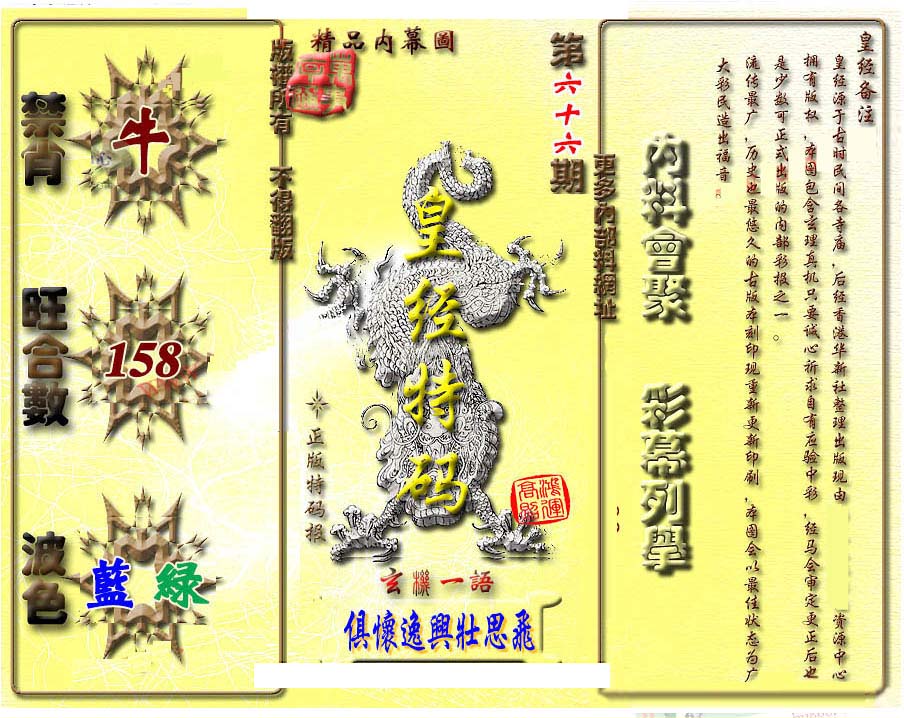 精品內幕圖
第六十六期
版權所有 不得翻版
更多內部料網址
禁肖
牛
旺合數
158
波色
藍 綠
皇经特码
正版特码报
鴻運高照
玄機一語
俱懷逸興壯思飛
內料會聚
彩幕列舉
皇经备注
皇经源于古时民间各寺庙,后经香港华新社整理出版现由 资源中心
拥有版权,本图包含玄理真机只要诚心祈求自有应验中彩,经马会审定更正后也
是少数可正式出版的内部彩报之一。
流传最广,历史也最悠久的古版本刻印现重新更新印刷,本图会以最佳状态为广
大彩民造出福音